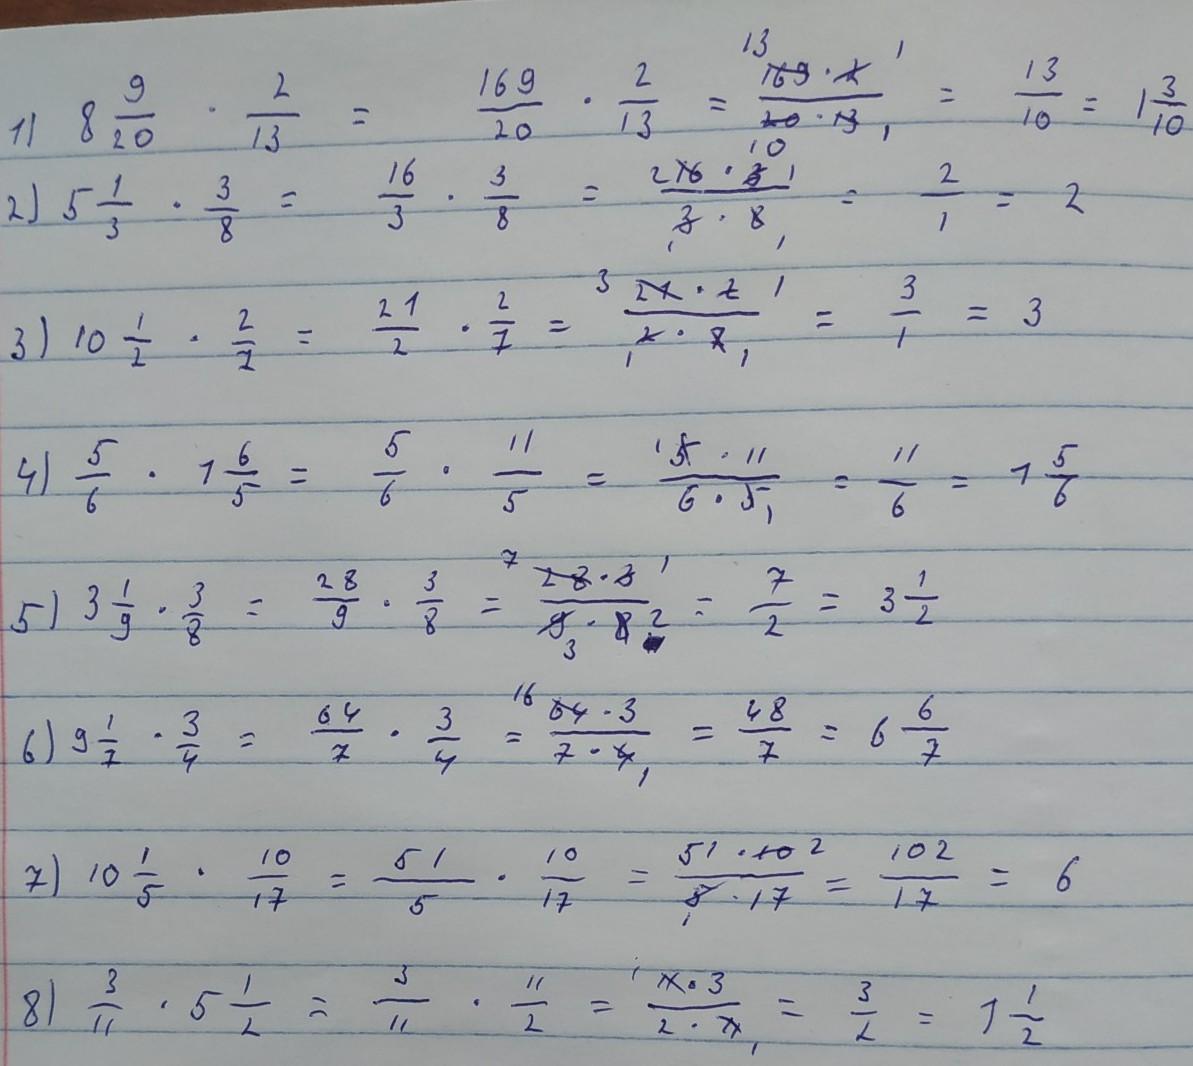 1) 8 9/20 · 2/13 = 169/20 · 2/13 = 13 169 · 2 1 / 20 · 13 1 10 = 13/10 = 1 3/10
2) 5 1/3 · 3/8 = 16/3 · 3/8 = 2 16 · 3 1 / 3 · 8 1 1 = 2/1 = 2
3) 10 1/2 · 2/7 = 21/2 · 2/7 = 3 21 · 2 1 / 1 2 · 7 1 = 3/1 = 3
4) 5/6 · 1 6/5 = 5/6 · 11/5 = 1 5 · 11 / 6 · 5 1 = 11/6 = 1 5/6
5) 3 1/9 · 3/8 = 28/9 · 3/8 = 7 28 · 3 1 / 9 3 · 8 2 = 7/2 = 3 1/2
6) 9 1/7 · 3/4 = 64/7 · 3/4 = 16 64 · 3 / 7 · 4 1 = 48/7 = 6 6/7
7) 10 1/5 · 10/17 = 51/5 · 10/17 = 51 · 10 2 / 5 1 · 17 = 102/17 = 6
8) 3/11 · 5 1/2 = 3/11 · 11/2 = 1 11 · 3 / 2 · 11 1 = 3/2 = 1 1/2